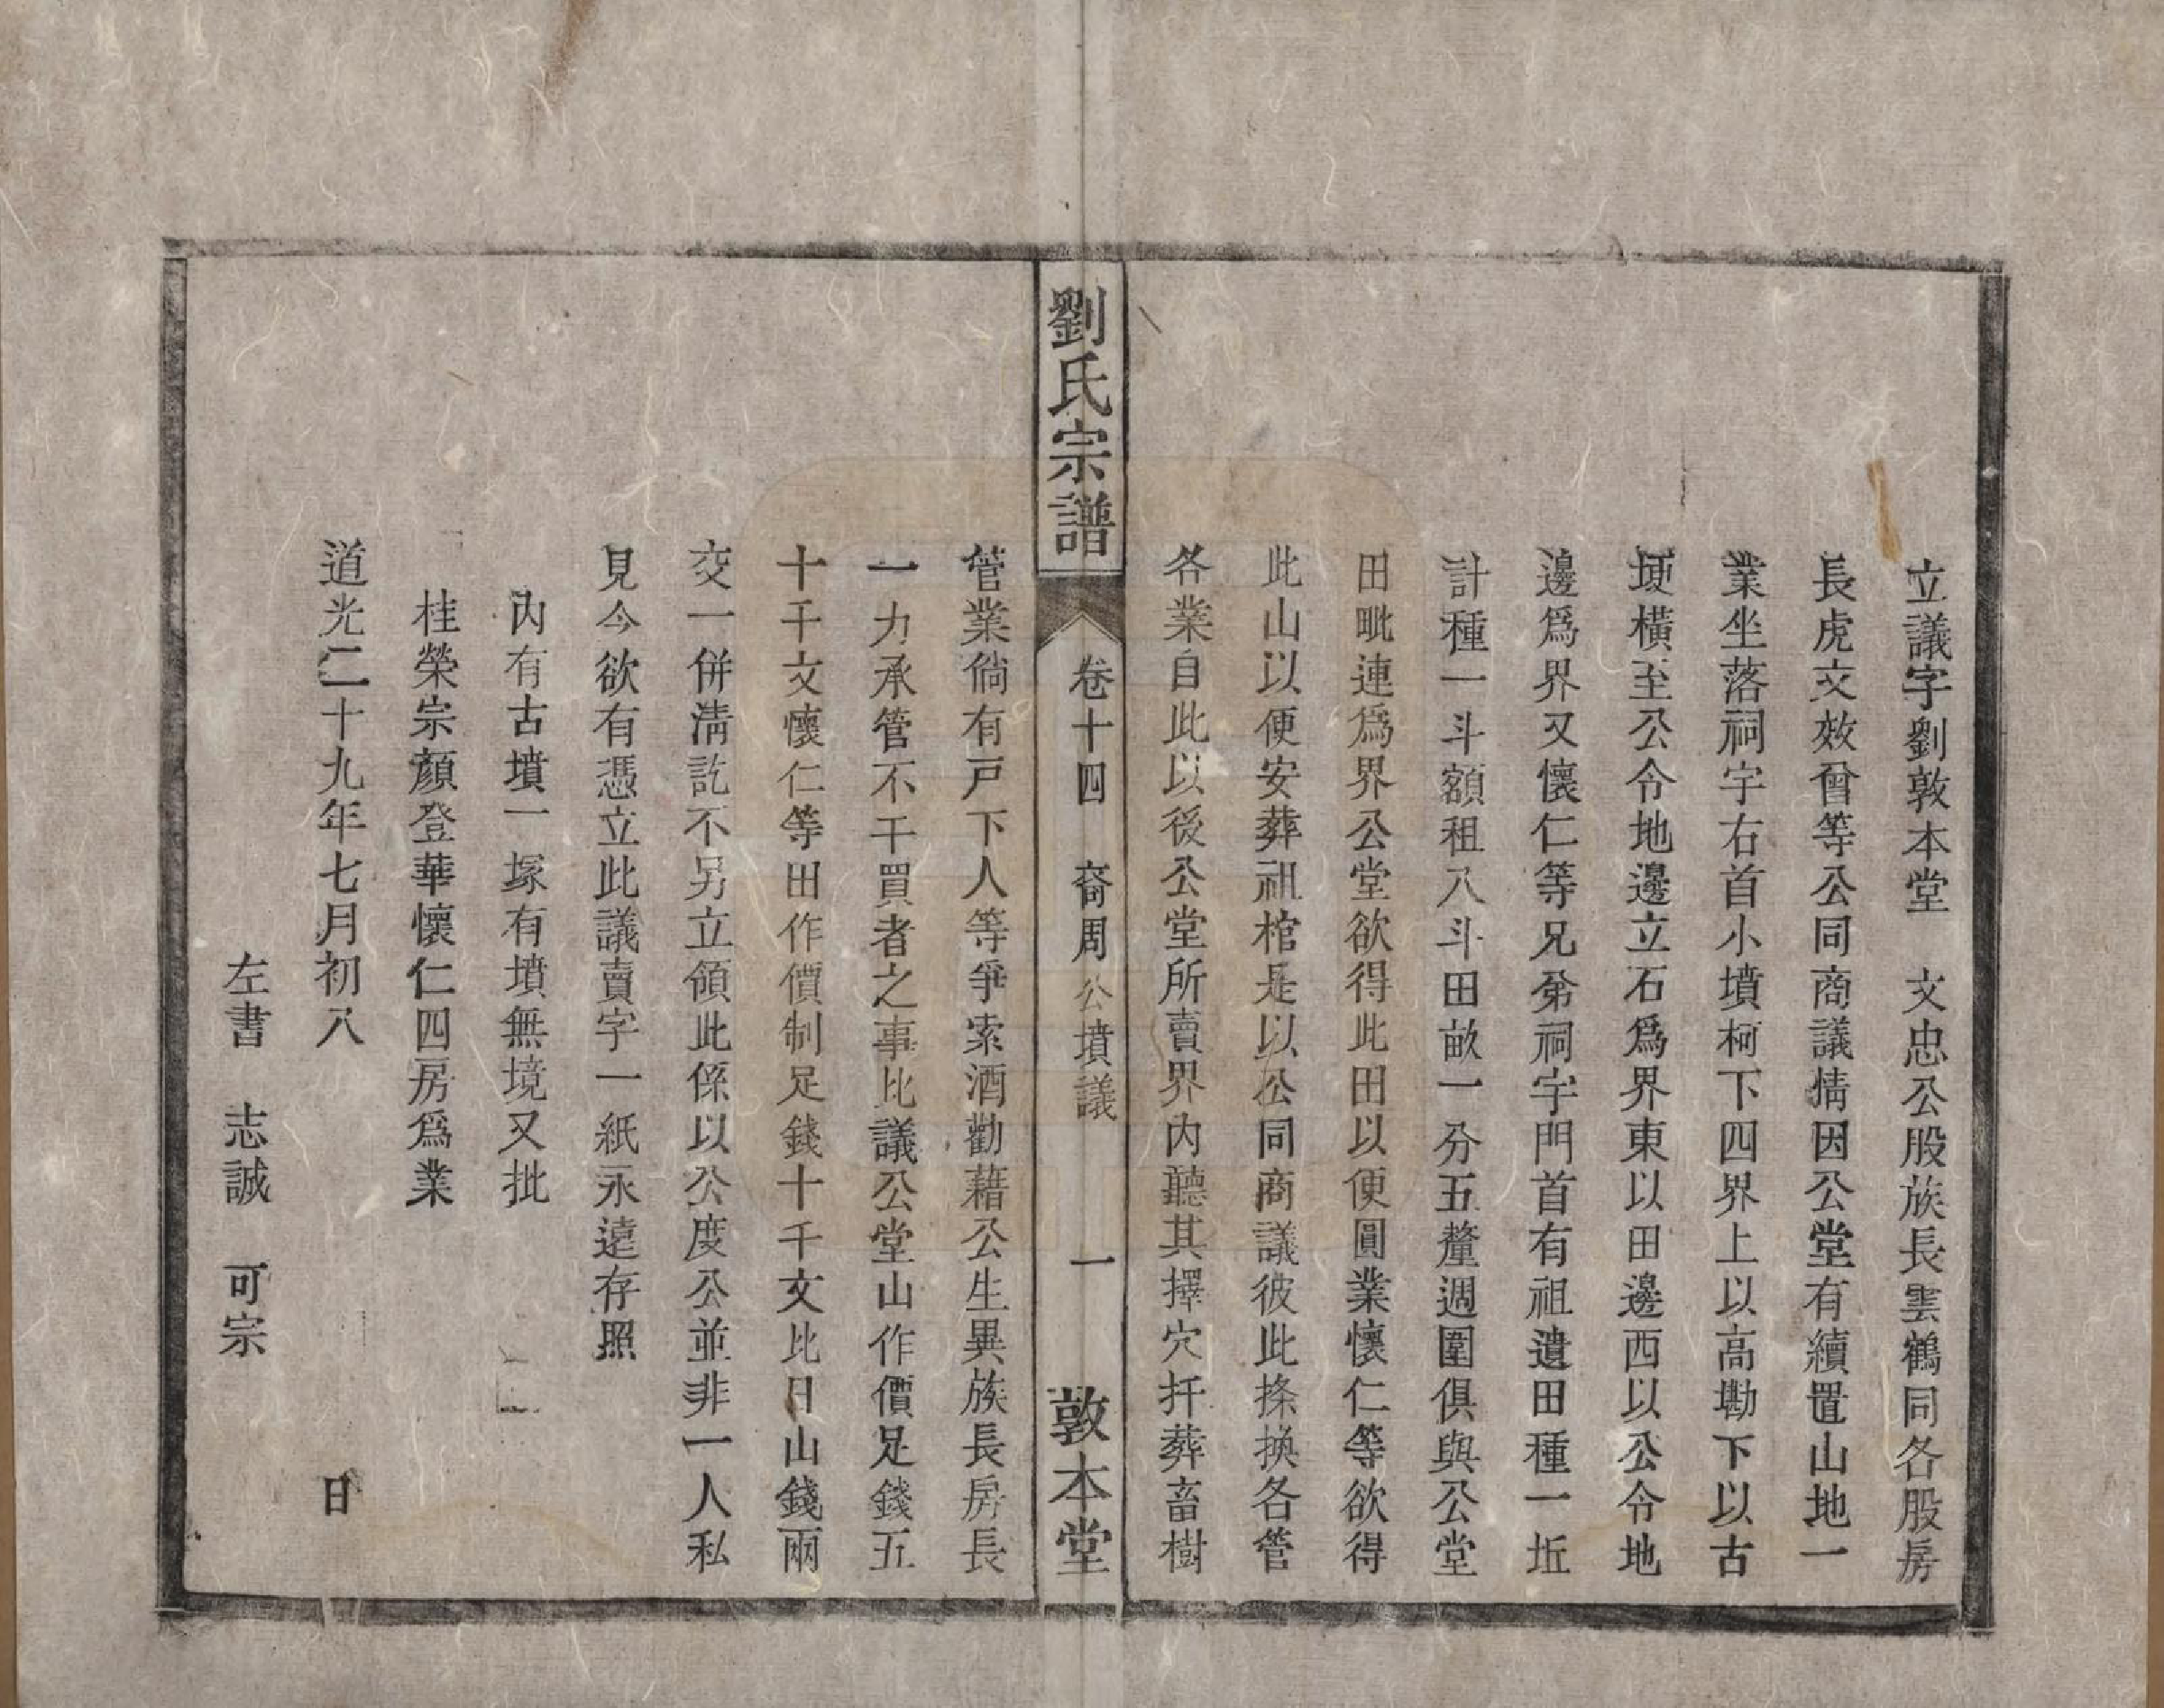 立議字劉敦本堂　文忠公股族長雲鶴同各股房
長虎文效曾等公同商議情因公堂有續置山地一
業坐落祠宇右首小墳柯下四界上以高墈下以古
塝橫至公令地邊立石爲界東以田邊西以公令地
邊爲界又懷仁等兄弟祠宇門首有祖遺田種一坵
計種一斗額租八斗田畝一分五釐週圍俱與公堂
田毗連爲界公堂欲得此田以便圓業懷仁等欲得
此山以便安葬祖棺是以公同商議彼此掉換各管
各業自此以後公堂所賣界內聽其擇穴扦葬畜樹
劉氏宗譜
卷十四　裔周公墳議　一
敦本堂
管業倘有戸下人等爭索酒勸藉公生異族長房長
一力承管不干買者之事比議公堂山作價足錢五
十千文懷仁等田作價制足錢十千文比日山錢兩
交一併清訖不另立領此係以公度公並非一人私
見今欲有憑立此議賣字一紙永遠存照
內有古墳一塚有墳無境又批
桂榮宗顏登華懷仁四房爲業
道光二十九年七月初八　日
左書　志誠　可宗